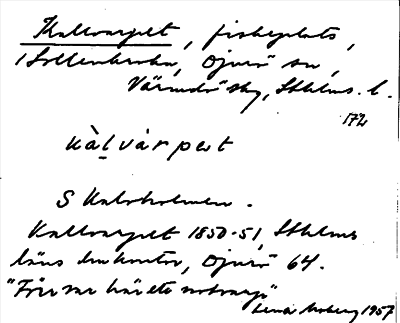 Kalvarpet, fiskeplats,
i Sollenkroka, Djurö sn,
Värmdö skg, Sthlms. l.
172
kàlvárpet
S Kalvholmen.
Kallvarpet 1850-51, Sthlms
läns lmkontor, Djurö 64.
"Förr var här ets notvarp"
Lena Moberg 1957